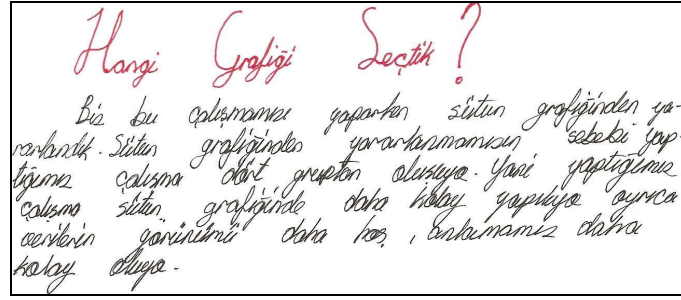 Hangi Grafiği Seçtik?
Biz bu çalışmamızı yaparken sütun grafiğinden ya-
rarlandık. Sütun grafiğinden yararlanmamızın sebebi yap-
tığımız çalışma dört gruptan oluşuyo. Yani yaptığımız
çalışma sütun grafiğinde daha kolay yapılıyo ayrıca
verilerin görünümü daha hoş, anlamamız daha
kolay oluyo.